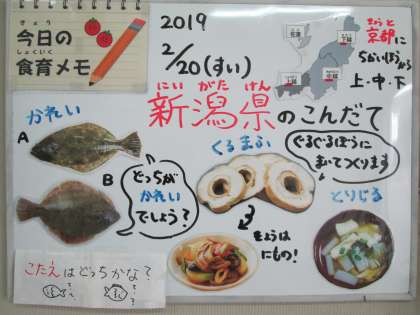 きょう
今日の
しょくいく
食育メモ
2019
2/20(すい)
にいがたけん
新潟県のこんだて
きょうと
京都に
ちかいほうから
上・中・下
佐渡
下越
中越
上越
かれい
A
B
どっちが
かれい
でしょう?
くるまふ
ぐるぐるぼうに
まいてつくります
きょうは
にもの!
とりじる
こたえはどっちかな?